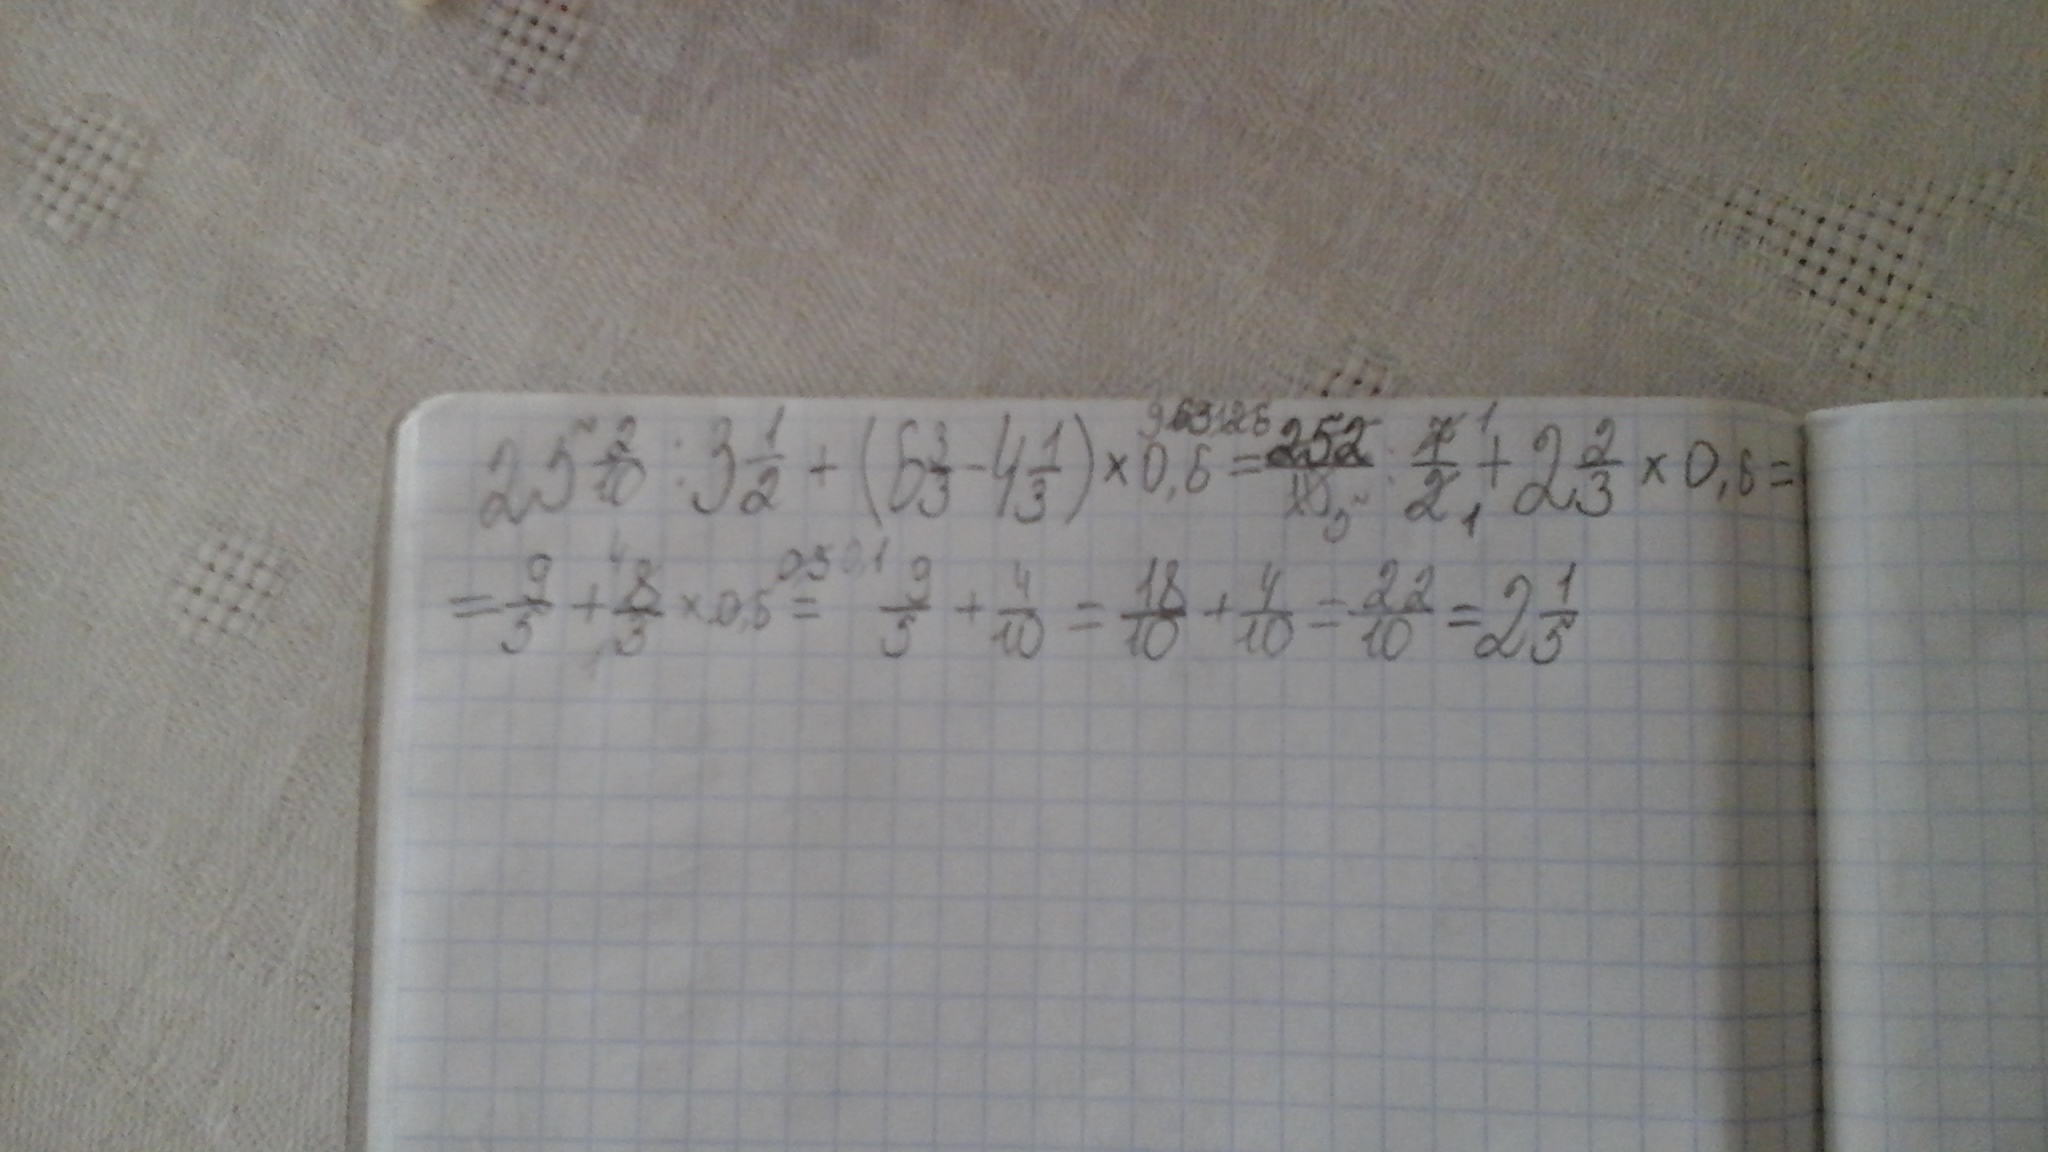 25 2/10 : 3 1/2 + (6 3/3 - 4 1/3) × 0,6 = 252/10 5 : 7 1/2 1 + 2 2/3 × 0,6 =
= 9/5 + 8 4/3 × 0,6 = 9/5 + 4/10 = 18/10 + 4/10 = 22/10 = 2 1/5